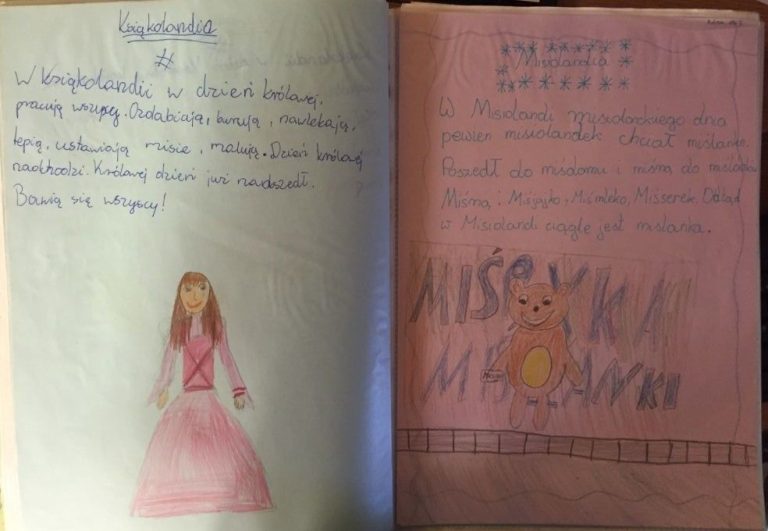 Książkolandia
#
W Książkolandii w dzień królowej,
pracują wszyscy. Ozdabiają, , nawlekają,
lepią, ustawiają misie, malują. Dzień królowej
nadchodzi. Królowej dzień już nadszedł.
Bawią się wszyscy!
Misiolandia
W Misiolandi misiolarskiego dnia
pewien misiolandek chciał miślankę.
Poszedł do miśdomu i miśną do
Miśną i Miśjajko, Miśmleko, Misserek. Odtąd
w Misiolandi ciągle jest miślanka.
MIŚ
KI